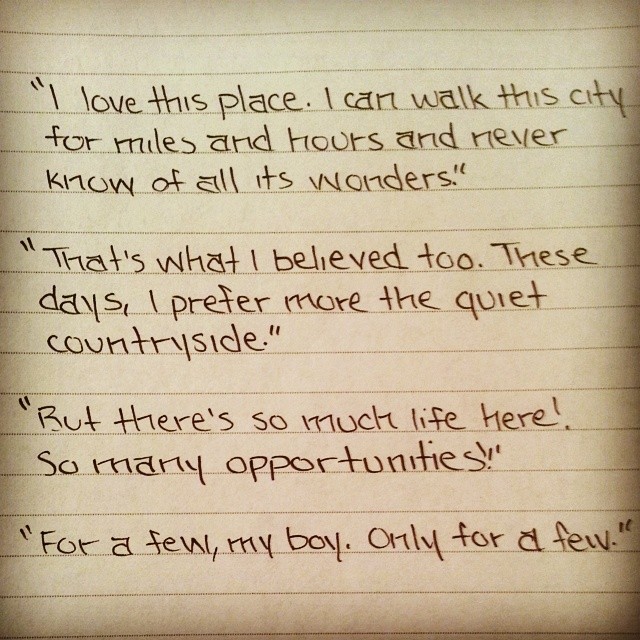 "I love this place. I can walk this city
for miles and hours and never
know of all its wonders."
"That's what I believed too. These
days, I prefer more the quiet
countryside."
"But there's so much life here!
So many opportunities!"
"For a few, my boy. Only for a few."